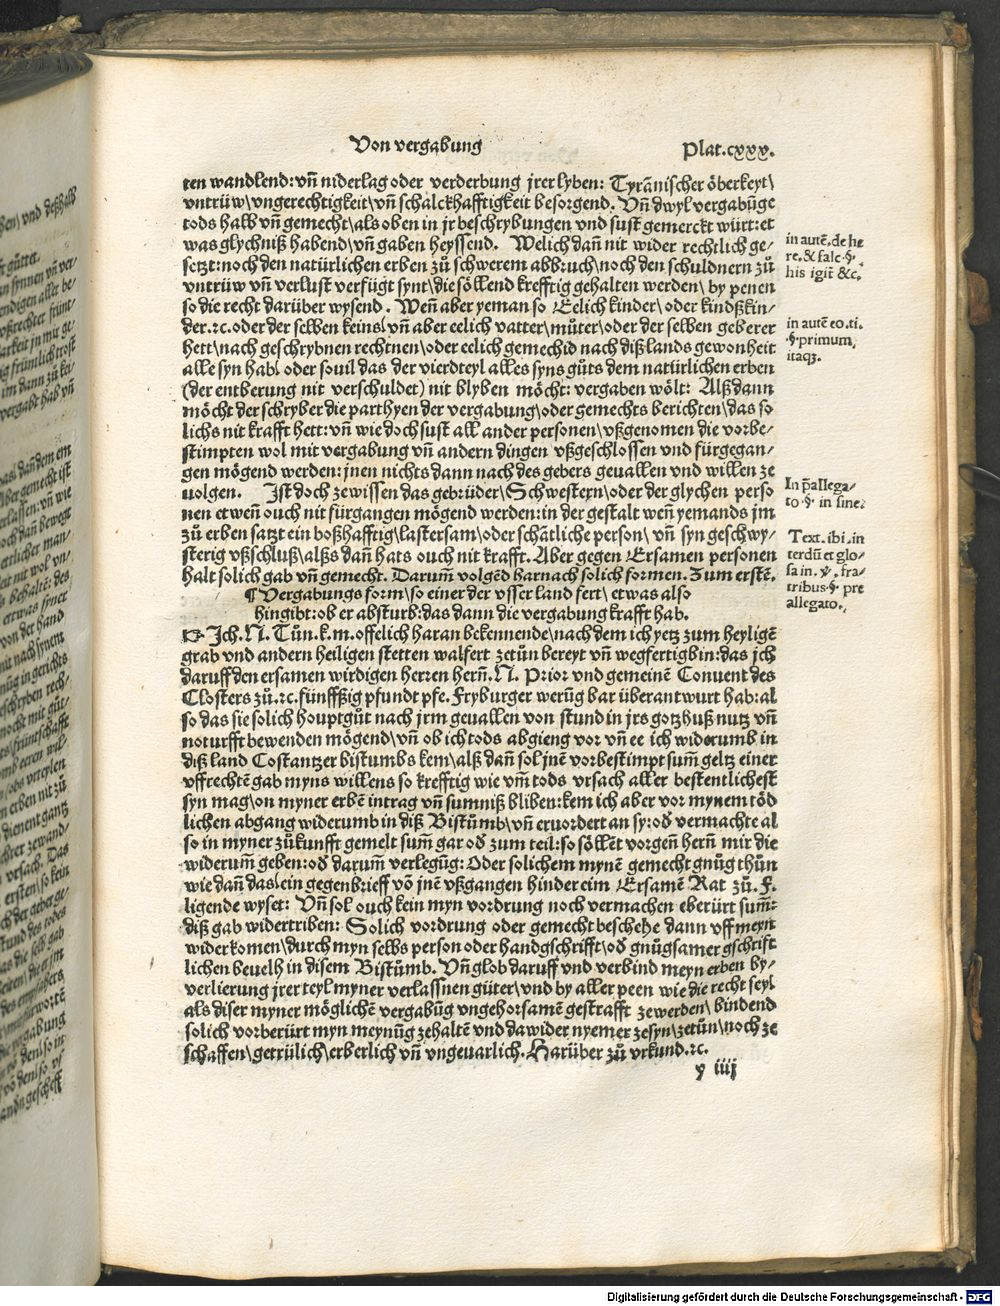 Von vergabung
Plat.cxxx.
ten wandlend: vñ niderlag oder verderbung jrer lyben: Tyrãnischer öberkeyt\
vntrüw\vngerechtigkeit\vñ schalckhafftigkeit besorgend. Vñ dwyl vergabũge
tods halb vñ gemecht\als oben in jr beschrybungen vnd sust gemerckt würt: et
was glychniß habend\vñ gaben heyssend. Welich dañ nit wider rechtlich ge⸗
setzt: noch den natürlichen erben zů schwerem abbruch\noch den schuldnern zů
vntrüw vñ verlust verfügt synt\die söllend krefftig gehalten werden\ by penen
so die recht darüber wysend. Weñ aber yeman so Eelich kinder\oder kindßkin⸗
der.ꝛc. oder der selben keins\ vñ aber eelich vatter\můter\oder der selben geberer
hett\nach geschrybnen rechtnen\oder eelich gemechid nach diß lands gewonheit
alle syn hab\ oder souil das der vierdteyl alles syns gůts dem natürlichen erben
(der entberung nit verschuldet) nit blyben möcht: vergaben wölt: Alß dann
möcht der schryber die parthyen der vergabung\oder gemechts berichten\das so
lichs nit krafft hett: vñ wie doch sust all ander personen\vßgenomen die vorbe⸗
stimpten wol mit vergabung vñ andern dingen vßgeschlossen vnd fürgegan⸗
gen mögend werden: jnen nichts dann nach des gebers geuallen vnd willen ze
uolgen. Ist doch ze wissen das gebrüder\Schwestern\oder der glychen perso
nen etweñ ouch nit fürgangen mögend werden: in der gestalt weñ yemands jm
zů erben satzt ein boßhafftig\lastersam\oder schãtliche person\ vñ syn geschwy⸗
sterig vßschluß\alßs dañ hats ouch nit krafft. Aber gegen Ersamen personen
halt solich gab vñ gemecht. Darum̃ volgẽd harnach solich formen. Zum erstẽ.
¶ Vergabungs form\so einer der vsser land fert\ etwas also
hingibt: ob er absturb: das dann die vergabung krafft hab.
☞ Ich. N. Tůn.k.m. offelich haran bekennende\nach dem ich yetz zum heyligẽ
grab vnd andern heiligen stetten walfert zetůn bereyt vñ wegfertig bin: das jch
daruff den ersamen wirdigen herren herñ. N. Prior vnd gemeinẽ Conuent des
Closters zů.ꝛc. fünffßig pfundt pfe. Fryburger werũg bar überantwurt hab: al
so das sie solich houptgůt nach jrm geuallen von stund in jrs gotzhuß nutz vñ
noturfft bewenden mögend\vñ ob ich tods abgieng vor vñ ee ich widerumb in
diß land Costantzer bistumbs kem\alß dañ sol jnẽ vorbestimpt sum̃ geltz einer
vffrechtẽ gab myns willens so krefftig wie vm̃ tods vrsach aller bestentlichest
syn mag\on myner erbẽ intrag vñ sumniß bliben: kem ich aber vor mynem töd
lichen abgang widerumb in diß Bistůmb\vñ eruordert an sy: oď vermachte al
so in myner zůkunfft gemelt sum̃ gar oď zum teil: so söllẽt vorgeñ herñ mir die
widerum̃ geben: oď darum̃ verlegũg: Oder solichem mynẽ gemecht gnůg thůn
wie dañ das\ein gegenbrieff võ jnẽ vßgangen hinder eim Ersamẽ Rat zů. F.
ligende wyset: Vñ sol ouch kein myn vordrung noch vermachen eberürt sum̃:
diß gab widertriben: Solich vordrung oder gemecht beschehe dann vff meyn
widerkomen\durch myn selbs person oder handgschrifft\oď gnůgsamer gschrifft
lichen beuelh in disem Bistůmb. Vñ glob daruff vnd verbind meyn erben by⸗
verlierung jrer teyl myner verlassnen güter\vnd by aller peen wie die recht seyl
als diser myner möglichẽ vergabũg vngehorsamẽ gestrafft ze werden\ bindend
solich vorberürt myn meynũg zehaltẽ vnd dawider nyemer zesyn\zetůn\noch ze
schaffen\getrülich\erberlich vñ vngeuarlich. Harüber zů vrkund.ꝛc.
y iiij
in autẽ. de he
re. & falc. §.
his igit̃ &c.
in autẽ eo. ti.
§. primum,
itaqꝫ.
In p̃allega⸗
to. §. in fine.
Text. ibi. in
terdũ et glo⸗
sa in. v. fra⸗
tribus. §. pre
allegato.
Digitalisierung gefördert durch die Deutsche Forschungsgemeinschaft - DFG